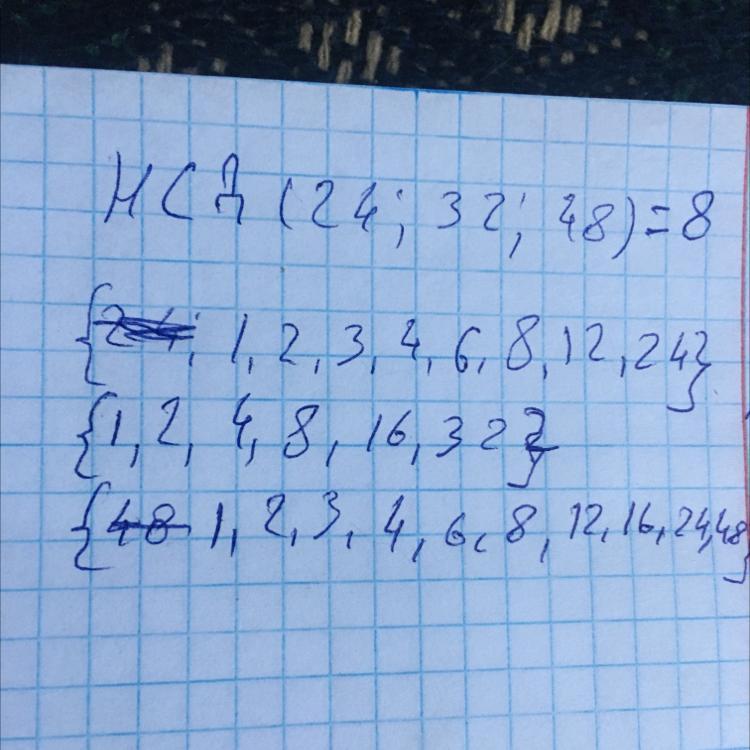 НСД (24; 32; 48) = 8
{1, 2, 3, 4, 6, 8, 12, 24}
{1, 2, 4, 8, 16, 32}
{1, 2, 3, 4, 6, 8, 12, 16, 24, 48}